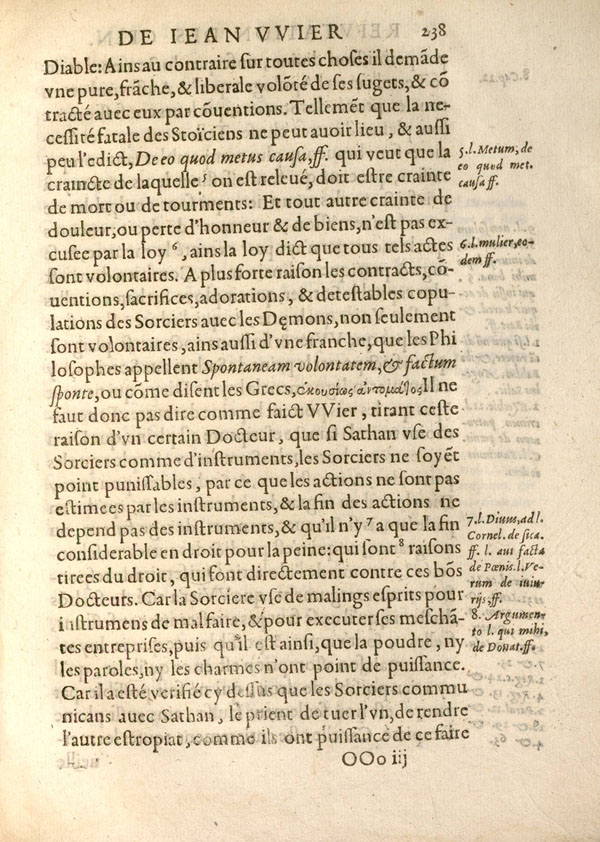 DE IEAN VVIER 238
Diable: Ains au contraire sur toutes choses il demãde
vne pure, frãche, & liberale volõté de ses sugets, & cõ
tracté auec eux par cõuentions. Tellemẽt que la ne-
cessité fatale des Stoïciens ne peut auoir lieu, & aussi
peu l'edict, De eo quod metus causa, ff. qui veut que la
craincte de laquelle 5 on est releué, doit estre crainte
de mort ou de tourments: Et tout autre crainte de
douleur, ou perte d'honneur & de biens, n'est pas ex-
cusee par la loy 6, ains la loy dict que tous tels actes
sont volontaires. A plus forte raison les contracts, cõ-
uentions, sacrifices, adorations, & detestables copu-
lations des Sorciers auec les Dęmons, non seulement
sont volontaires, ains aussi d'vne franche, que les Phi
losophes appellent Spontaneam volontatem, & factum
sponte, ou cõme disent les Grecs, Il ne
faut donc pas dire comme faict VVier, tirant ceste
raison d'vn certain Docteur, que si Sathan vse des
Sorciers comme d'instruments, les Sorciers ne soyẽt
point punissables, par ce que les actions ne sont pas
estimees par les instruments, & la fin des actions ne
depend pas des instruments, & qu'il n'y 7 a que la fin
considerable en droit pour la peine: qui sont 8 raisons
tirees du droit, qui sont directement contre ces bõs
Docteurs. Car la Sorciere vse de malings esprits pour
instrumens de mal faire, & pour executer ses meschã-
tes entreprises, puis qu'il est ainsi, que la poudre, ny
les paroles, ny les charmes n'ont point de puissance.
Car il a esté verifié cy dessus que les Sorciers commu
nicans auec Sathan, le prient de tuer l'vn, de rendre
l'autre estropiat, comme ils ont puissance de ce faire
OOo iij
5. l. Metum, de
eo quod met.
causa ff.
6. l. mulier, eo-
dem ff.
7. l. Diuus, ad l.
Cornel. de sica.
ff. l. aut facta
de Pœnis. l. Ve-
rum de iniu-
rijs, ff.
8. Argumen-
to l. qui mihi,
de Donat. ff.